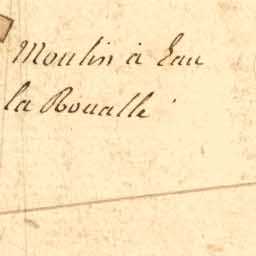 Moulin à Eau
la Roualle